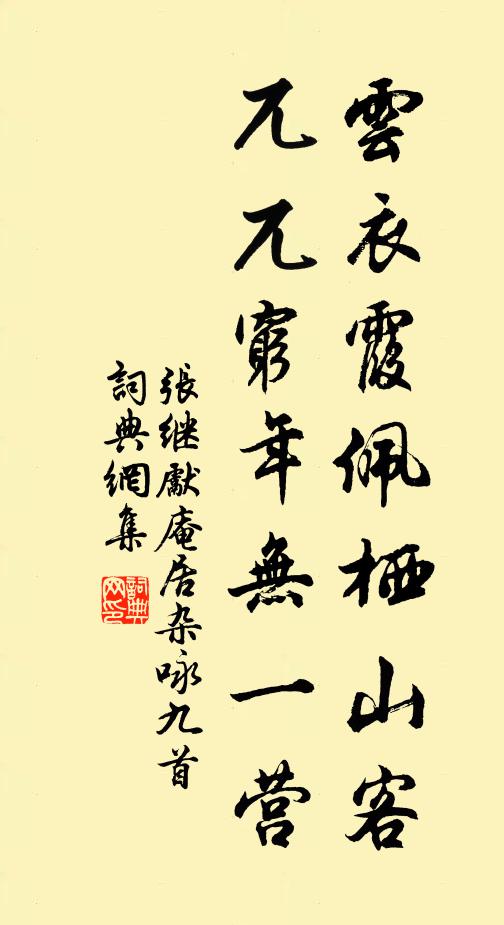 雲衣霞佩栖山客
兀兀窮年無一营
張继獻庵居杂咏九首
詞典網集
詞典